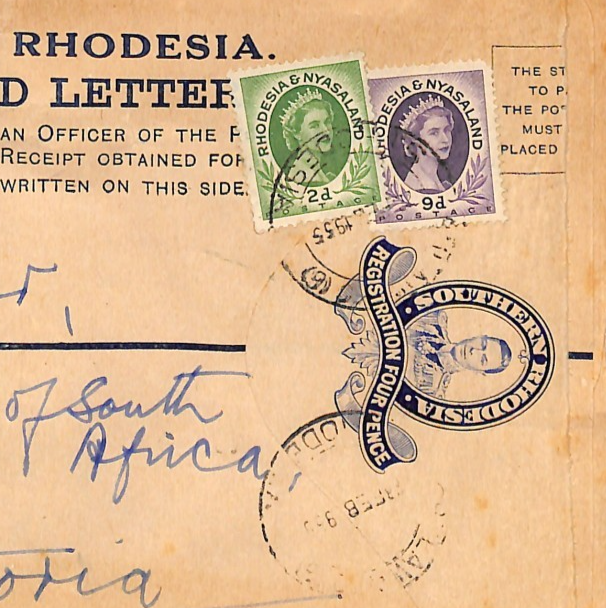 RHODESIA.
D LETTER
AN OFFICER OF THE P
RECEIPT OBTAINED FOR
WRITTEN ON THIS SIDE.
RHODESIA & NYASALAND
2d
POSTAGE
RHODESIA & NYASALAND
9d
POSTAGE
THE ST
TO P
THE POS
MUST
PLACED
1955
REGISTRATION FOUR PENCE
SOUTHERN RHODESIA
of South
Africa,
FEB